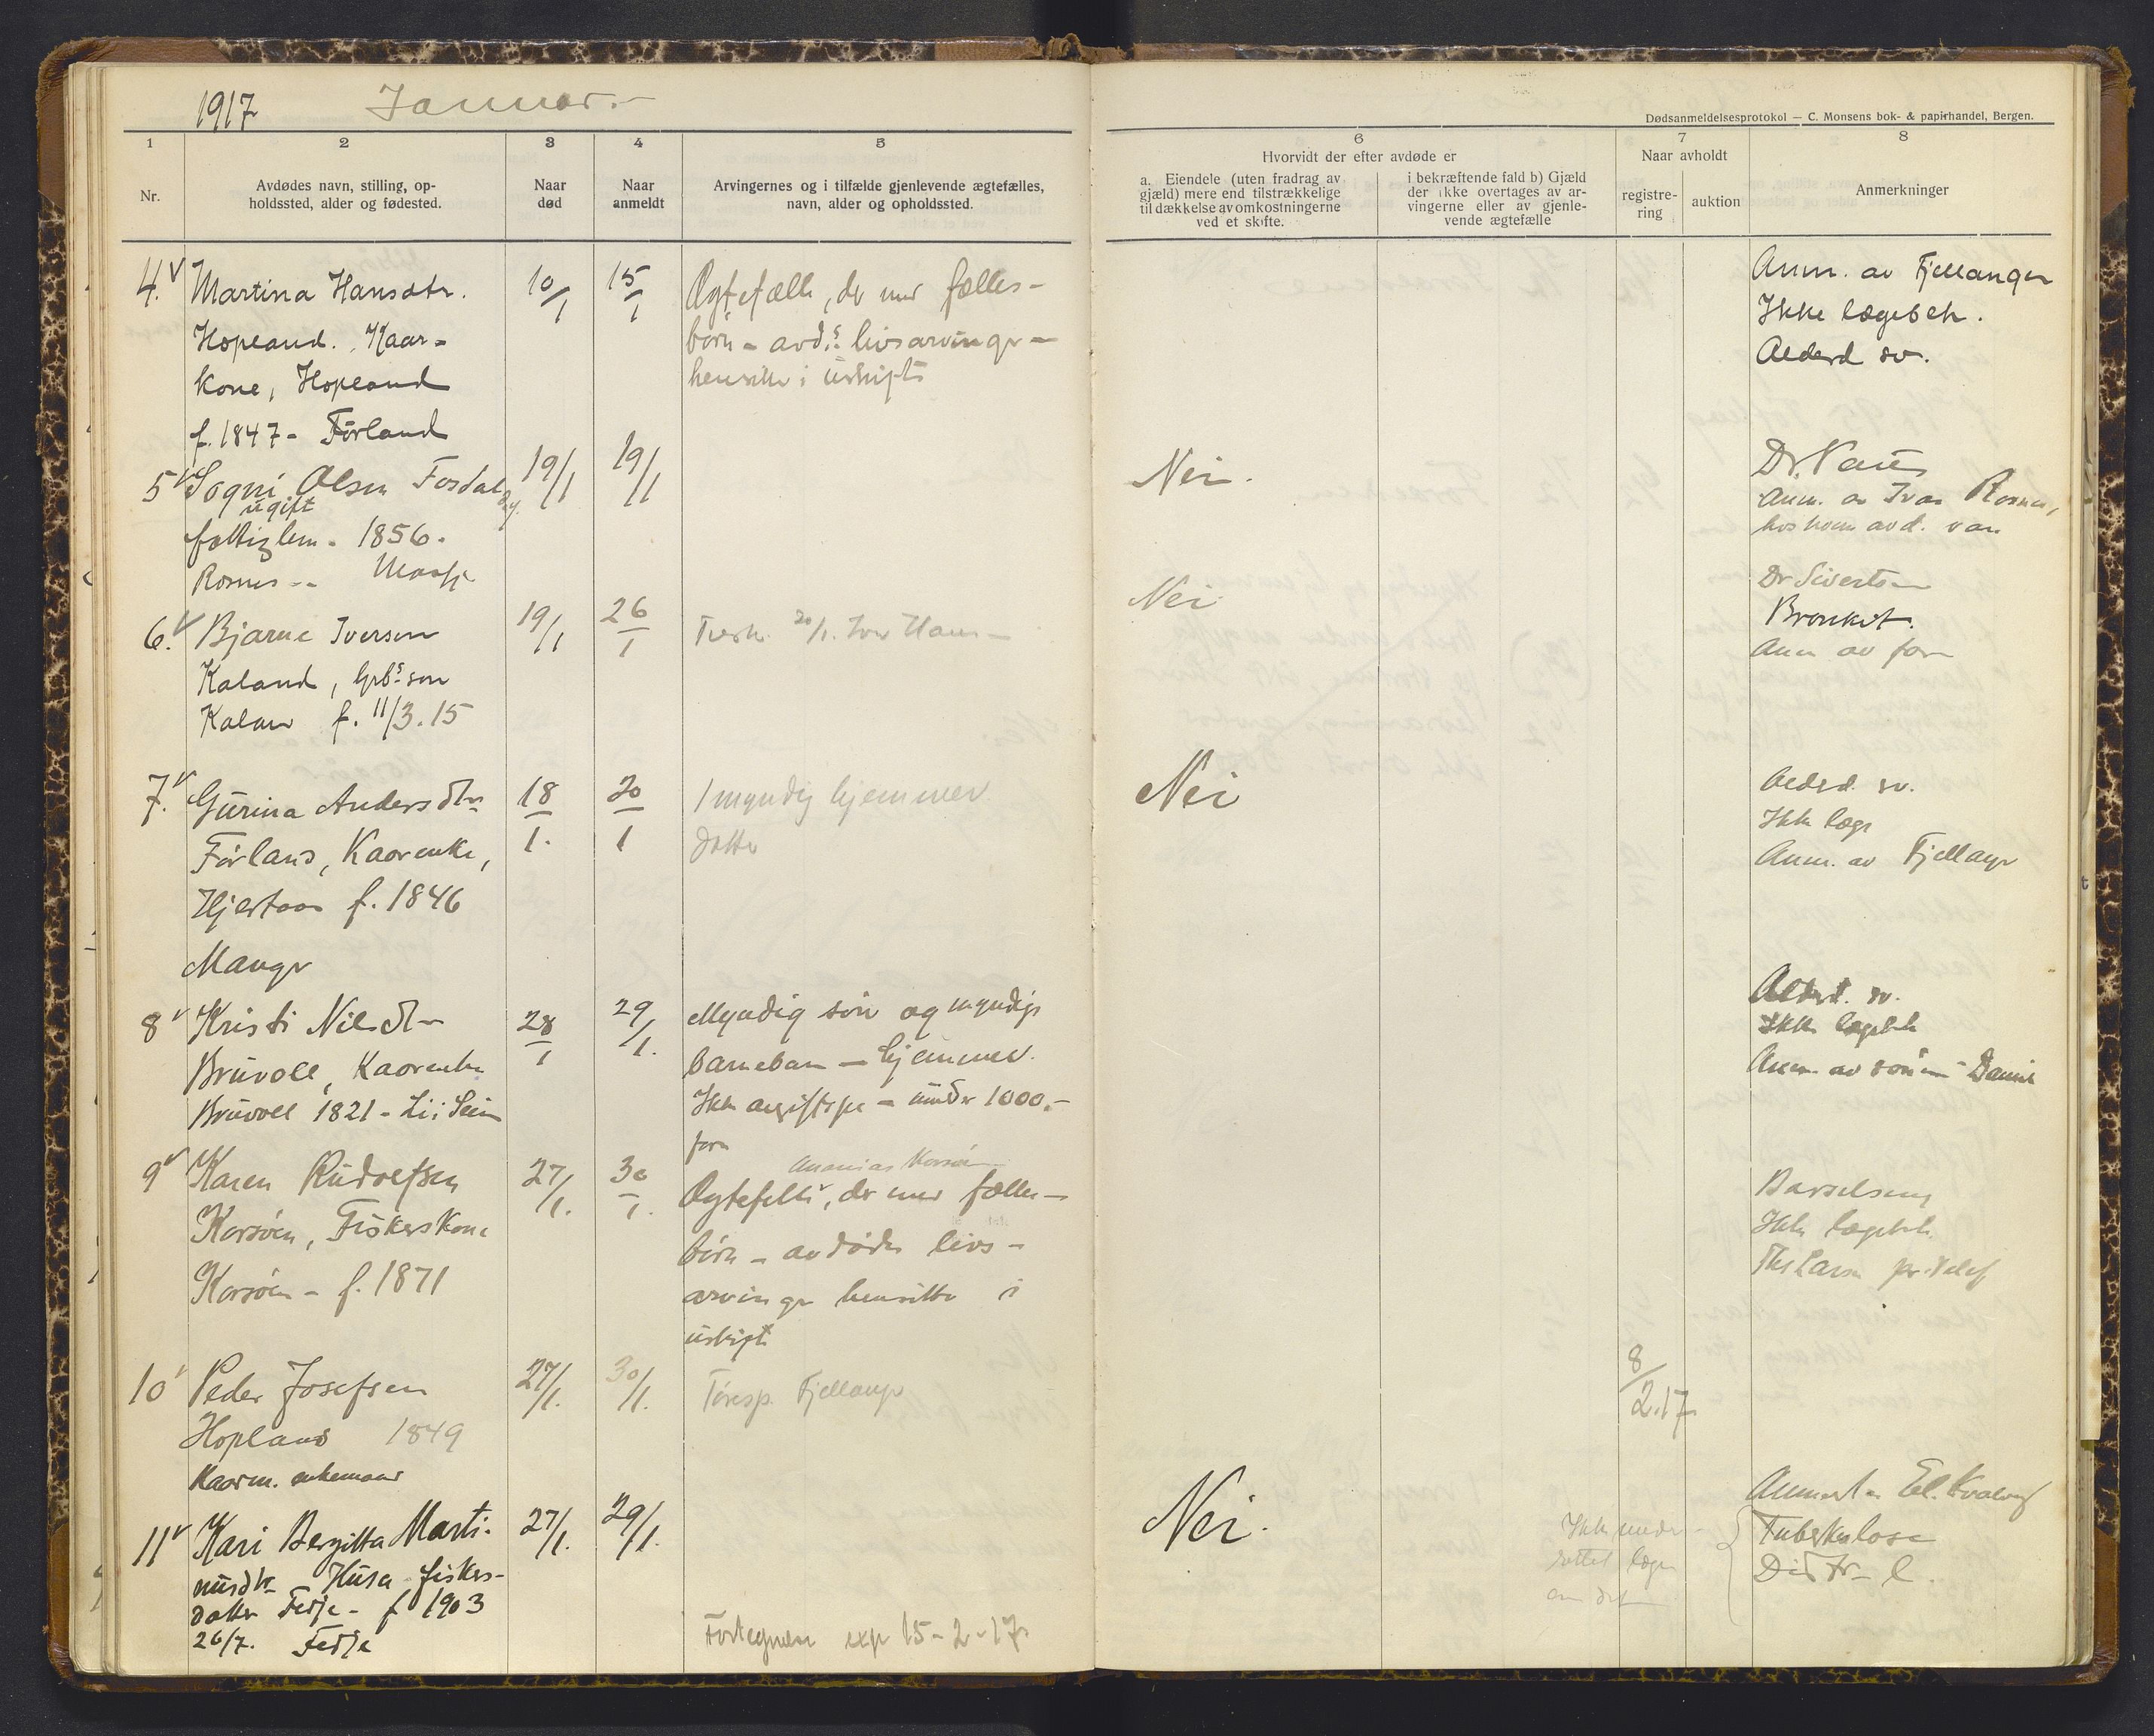 1917 Januar.
Dødsanmeldelsesprotokol — C. Monsens bok- & papirhandel, Bergen.
1 2 3 4 5 6 7 8
Nr.
Avdødes navn, stilling, op-
holdssted, alder og fødested.
Naar
død
Naar
anmeldt
Arvingernes og i tilfælde gjenlevende ægtefælles,
navn, alder og opholdssted.
Hvorvidt der efter avdøde er
a. Eiendele (uten fradrag av
gjæld) mere end tilstrækkelige
til dækkelse av omkostningerne
ved et skifte.
i bekræftende fald b) Gjæld
der ikke overtages av ar-
vingerne eller av gjenle-
vende ægtefælle
Naar avholdt
registre-
ring
auktion
Anmerkninger
4. Martina Hansdtr.
Hopland. Kaar-
kone, Hopland
f. 1847 - Förland
10/1
15/1
Ægtefælle, der med fælles-
børn - avd.s livsarvinger -
hensitter i uskifte
Anm. av Fjellanger
Ikke lægebeh.
Alderd. sv.
5 Olsen Fosdal
ugift
fattiglem. 1856.
19/1
19/1
Nei.
Dr.
Anm. av Ivar
hos hvem avd. var
6. Bjarne Iversen
Kaland, Grbs. søn
Kaland f. 11/3.15
19/1
26/1
Nei
Dr Sivertsen
Bronkit.
Anm av far
7. Gurina Andersdtr
Förland, Kaarenke,
Hjertaas f. 1846
Manger
18/1.
20/1
1 myndig hjemmev
datter
Nei
Alderd. sv.
Ikke læge
Anm. av Fjellanger
8 Kristi Nilsdtr
Bruvoll, Kaarenke
Bruvoll 1821 - Li i Seim
28/1
29/1.
Myndig søn og myndige
barnebarn — hjemmev.
Ikke - under 1000.-
Alderd. sv.
Ikke lægebeh
Anm. av sønnen
9 Karen Rudolfsen
Korsøen, Fiskerskone
Korsøen - f. 1871
27/1.
30/1.
Ananias Korsøen
Ægtefelle, der med fælles-
børn - avdødes livs-
arvinger hensitter i
uskifte
Barselseng
Ikke lægebeh.
Larsen pr. telef
10 Peder Josefsen
Hopland 1849
Kaarm. enkemand
27/1.
30/1.
Fjellanger
8/2.17
11 Kari Bergitta Marti-
nusdtr Husa fisker-
datter Fedje - f 1903
26/7. Fedje
27/1.
29/1.
Nei.
Ikke under-
rettet læge
om det
Tuberkulose
Distr. l.
Fortegnelse exp 15-2-17